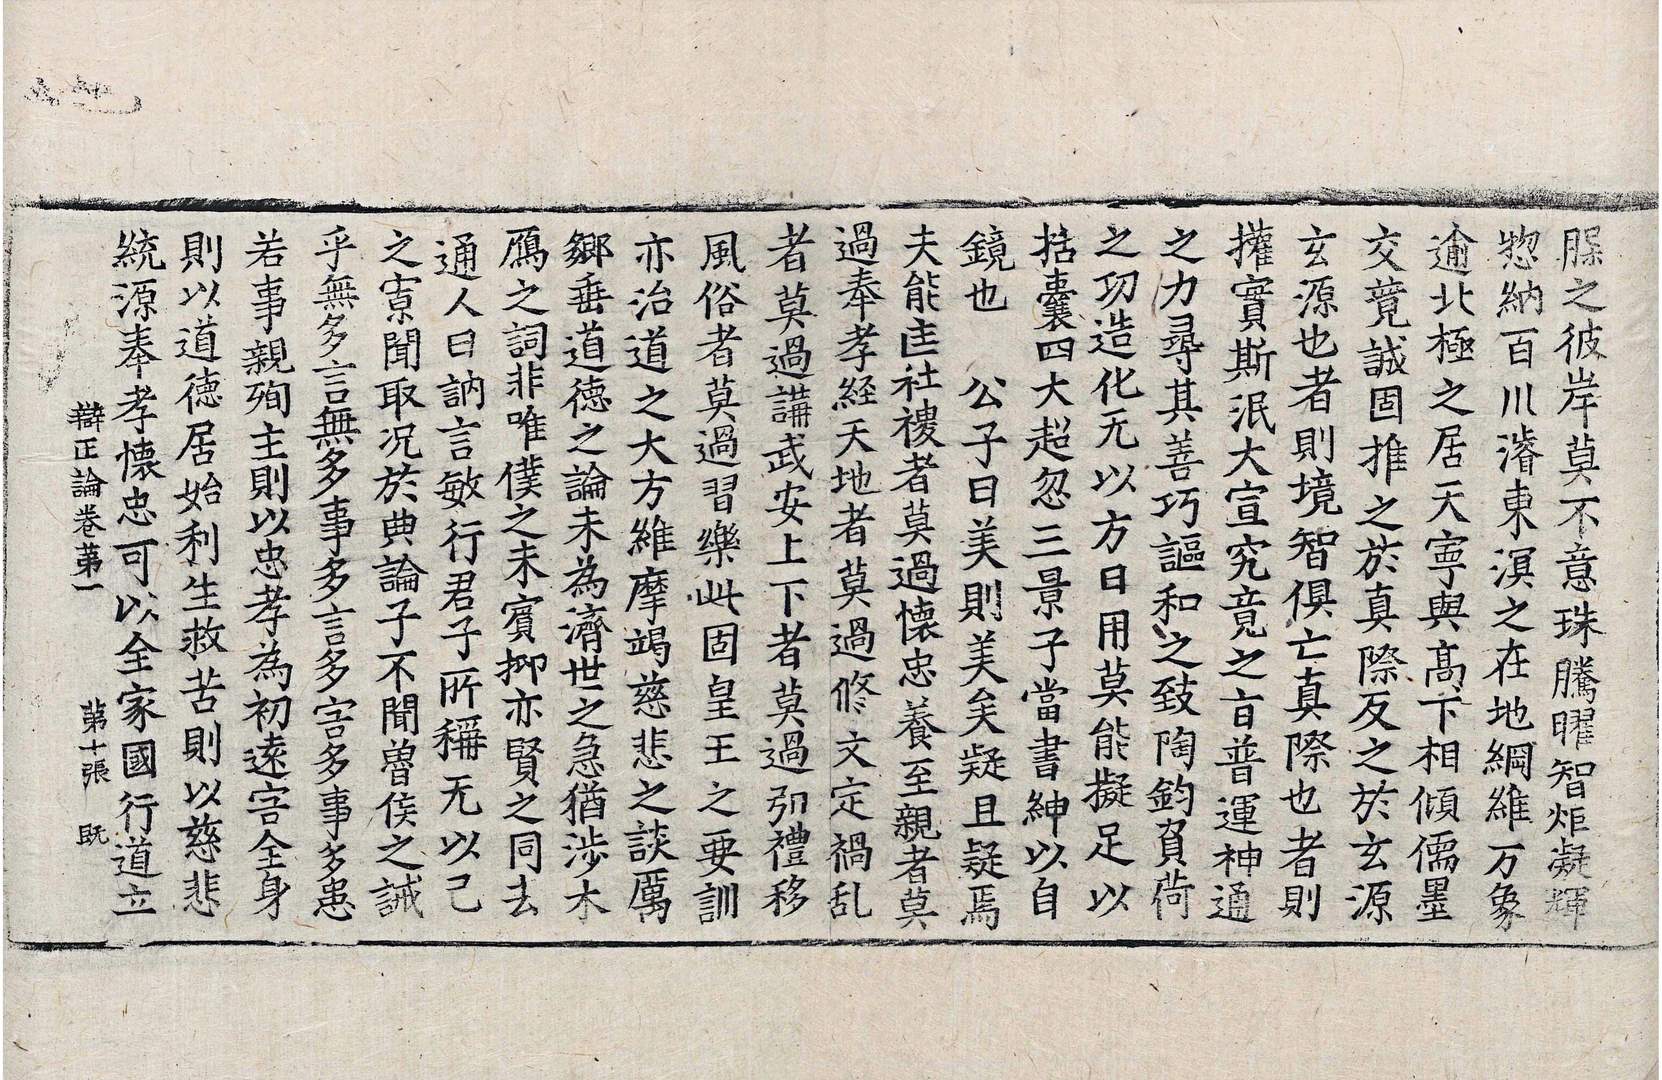 臊之彼岸莫不意珠騰曜智炬凝輝
惣納百川濬東溟之在地綱維万象
逾北極之居天寧與髙下相傾儒墨
交競誠固推之於真際反之於玄源
玄源也者則境智俱亡真際也者則
搉實斯泯大宣究竟之旨普運神通
之力尋其善巧謳和之致陶鈞負荷
之功造化无以方日用莫能擬足以
括囊四大超忽三景子當書紳以自
鏡也　公子曰美則美矣疑且疑焉
夫能匡社稷者莫過懐忠養至親者莫
過奉孝経天地者莫過修文定禍乱
者莫過講武安上下者莫過引禮移
風俗者莫過習樂此固皇王之要訓
亦治道之大方維摩竭慈悲之談厲
鄉垂道德之論未為濟世之急猶涉木
鴈之詞非唯僕之未賓抑亦賢之同去
通人曰訥言敏行君子所稱无以己
之寮聞取况於典論子不聞魯侯之誡
乎無多言無多事多言多害多事多患
若事親殉主則以忠孝為初遠害全身
則以道德居始利生救苦則以慈悲
統源奉孝懐忠可以全家國行道立
辯正論卷苐一　苐十張　既